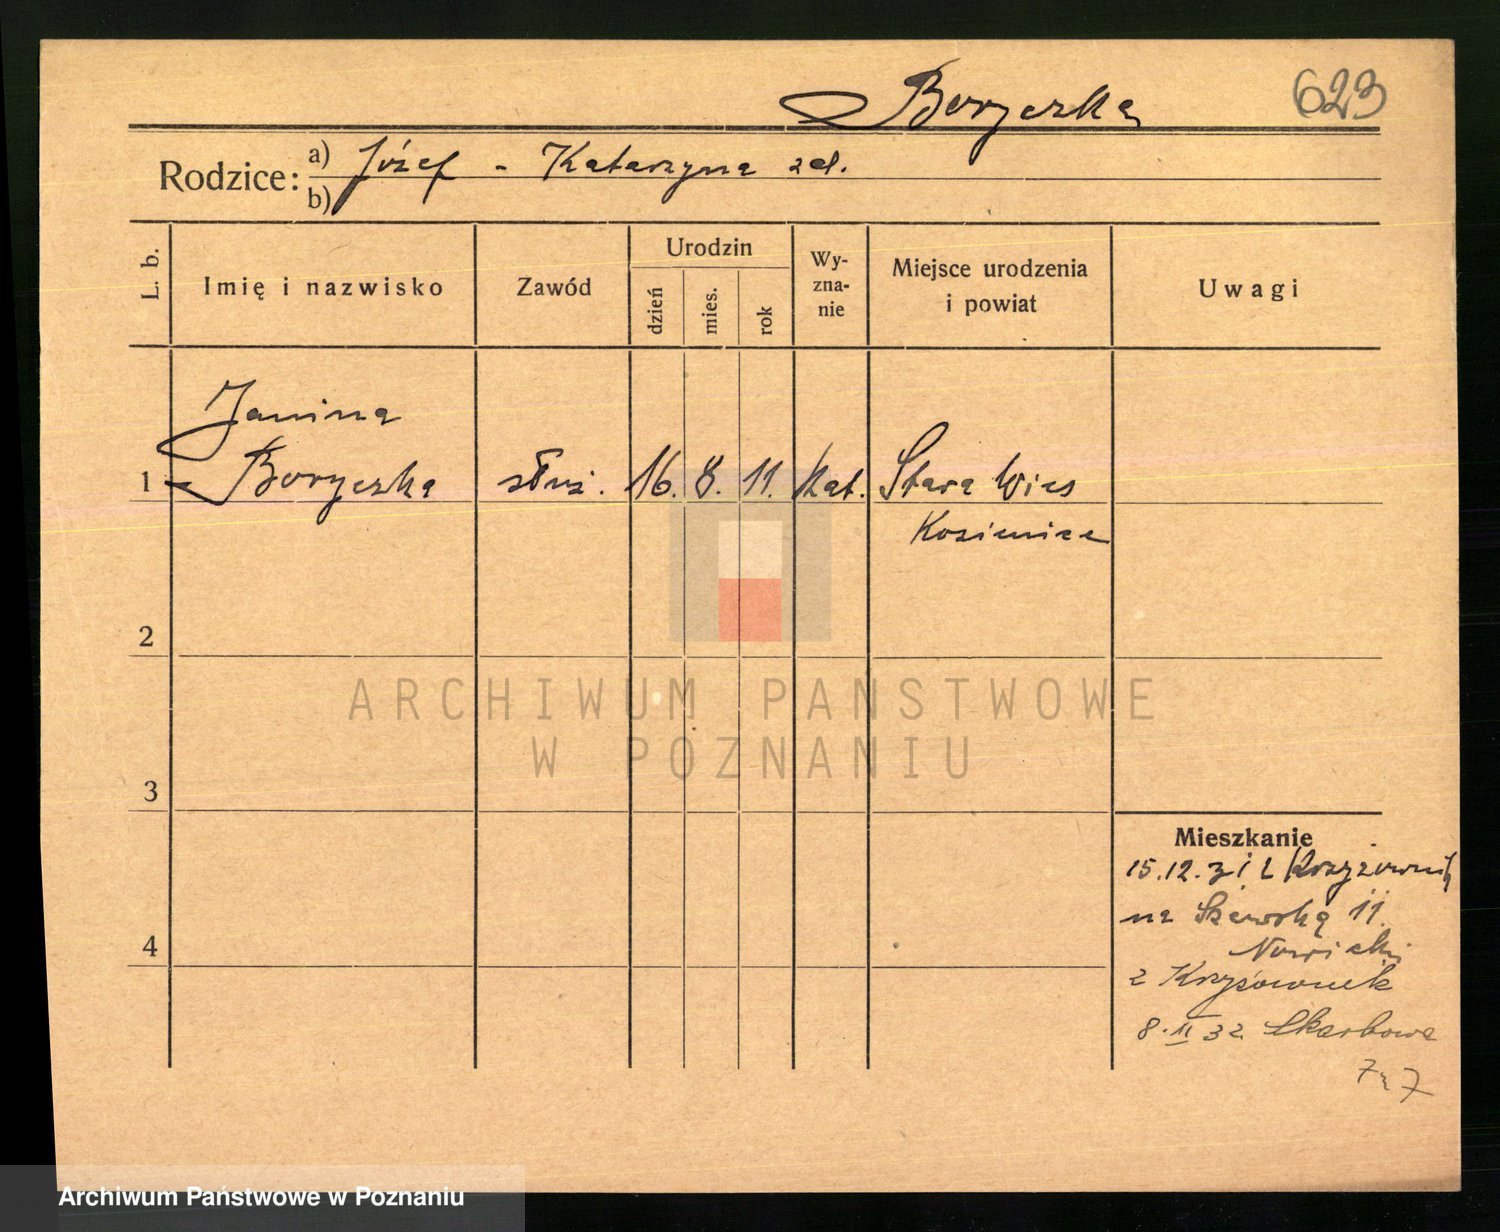 Boryczka 623
Rodzice: a) Józef - Katarzyna zd.
b)
L. b. Imię i nazwisko Zawód Urodzin dzień mies. rok Wy-zna-nie Miejsce urodzenia i powiat Uwagi
Janina
1 Boryczka służ. 16. 8. 11. Kat. Stara Wieś
Kozienice
2
ARCHIWUM PAŃSTWOWE
W POZNANIU
3
Mieszkanie
15.12.31 z Krzyżownik
na Szewską 11.
4
Nowicki
z Krzyżownik
8.II 32 Skarbowa
Archiwum Państwowe w Poznaniu